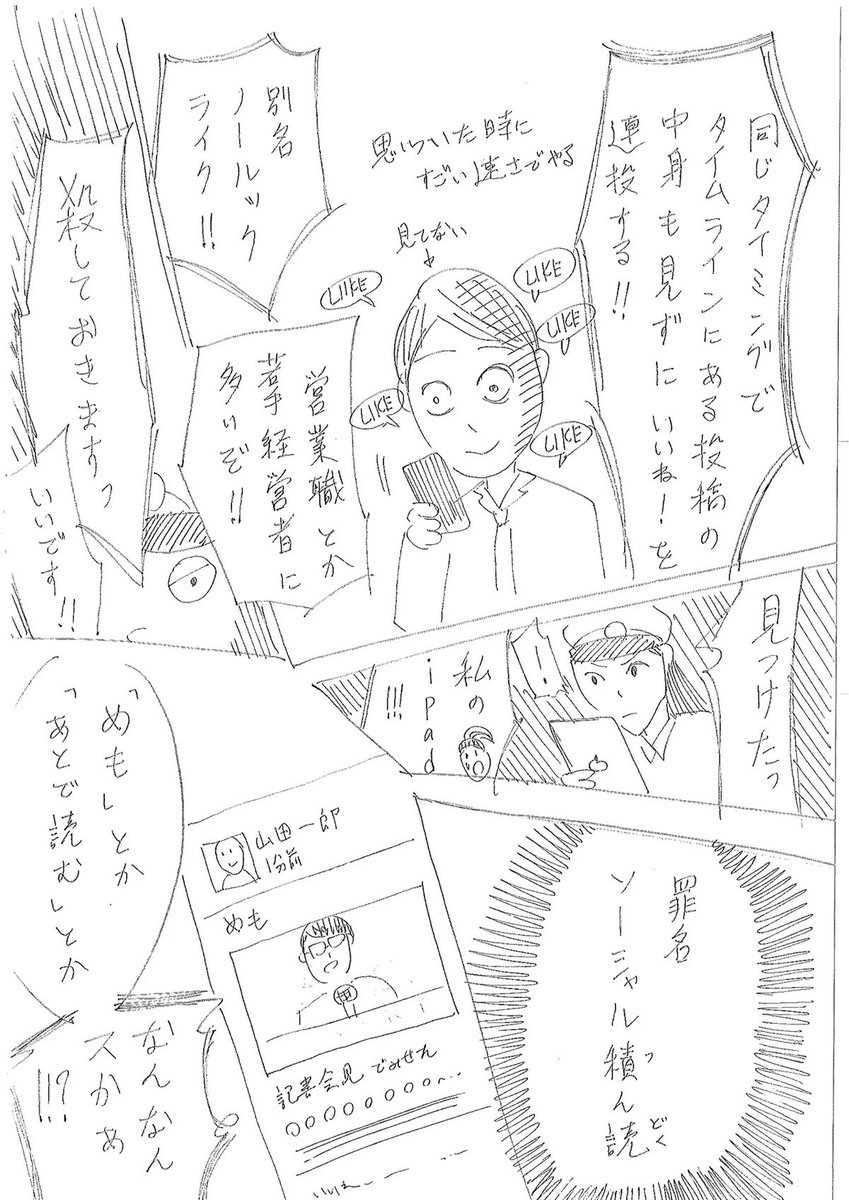 同じタイミングで
タイムラインにある投稿の
中身も見ずにいいね!を
連投する!!
思いついた時に
すごい速さでやる
見てない
LIKE
LIKE
LIKE
LIKE
LIKE
別名
ノールック
ライク!!
営業職とか
若手経営者に
多いぞ!!
殺しておきますっ
いいです!!
見つけたっ
!
私の
ipad
!!!
罪名
ソーシャル積ん読
つ
どく
山田一郎
1分前
めも
記者会見
〇〇〇〇〇〇〇〇
「めも」とか
「あとで読む」とか
なんなん
スかあ
!!?